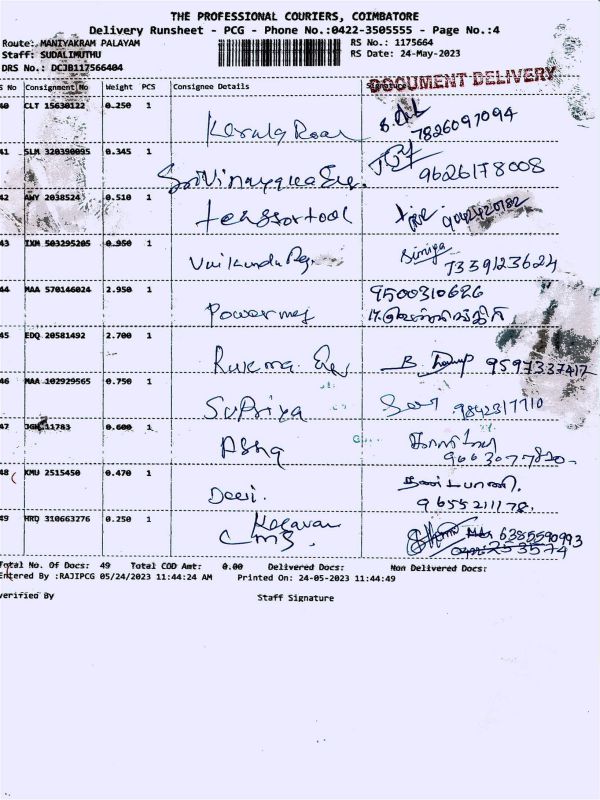 THE PROFESSIONAL COURIERS, COIMBATORE
Delivery Runsheet - PCG - Phone No.:0422-3505555 - Page No.:4
Route: MANIYAKRAM PALAYAM RS No.: 1175664
Staff: SUDALIMUTHU RS Date: 24-May-2023
DRS No.: DCJB117566404
DOCUMENT DELIVERY
S No Consignment No Weight PCS Consignee Details
40 CLT 15630122 0.250 1
Kerala Roar
7826097094
41 SLM 320390095 0.345 1
9626178008
42 AWY 2038524 0.510 1
9042420782
43 IXM 503295205 0.950 1
Simiya
7339123624
44 MAA 570146024 2.950 1
9500310626
Powermg
45 EDQ 20581492 2.700 1
Rukma 9597337417
46 MAA 102929565 0.750 1
Supriya 9842317710
47 11783 0.600 1
9663077820
48 KMU 2515450 0.470 1
Devi.
9655211178.
49 HRQ 310663276 0.250 1
Kesavan
CMS 6385590993
Total No. Of Docs: 49 Total COD Amt: 0.00 Delivered Docs: Non Delivered Docs:
Entered By :RAJIPCG 05/24/2023 11:44:24 AM Printed On: 24-05-2023 11:44:49
verified By Staff Signature